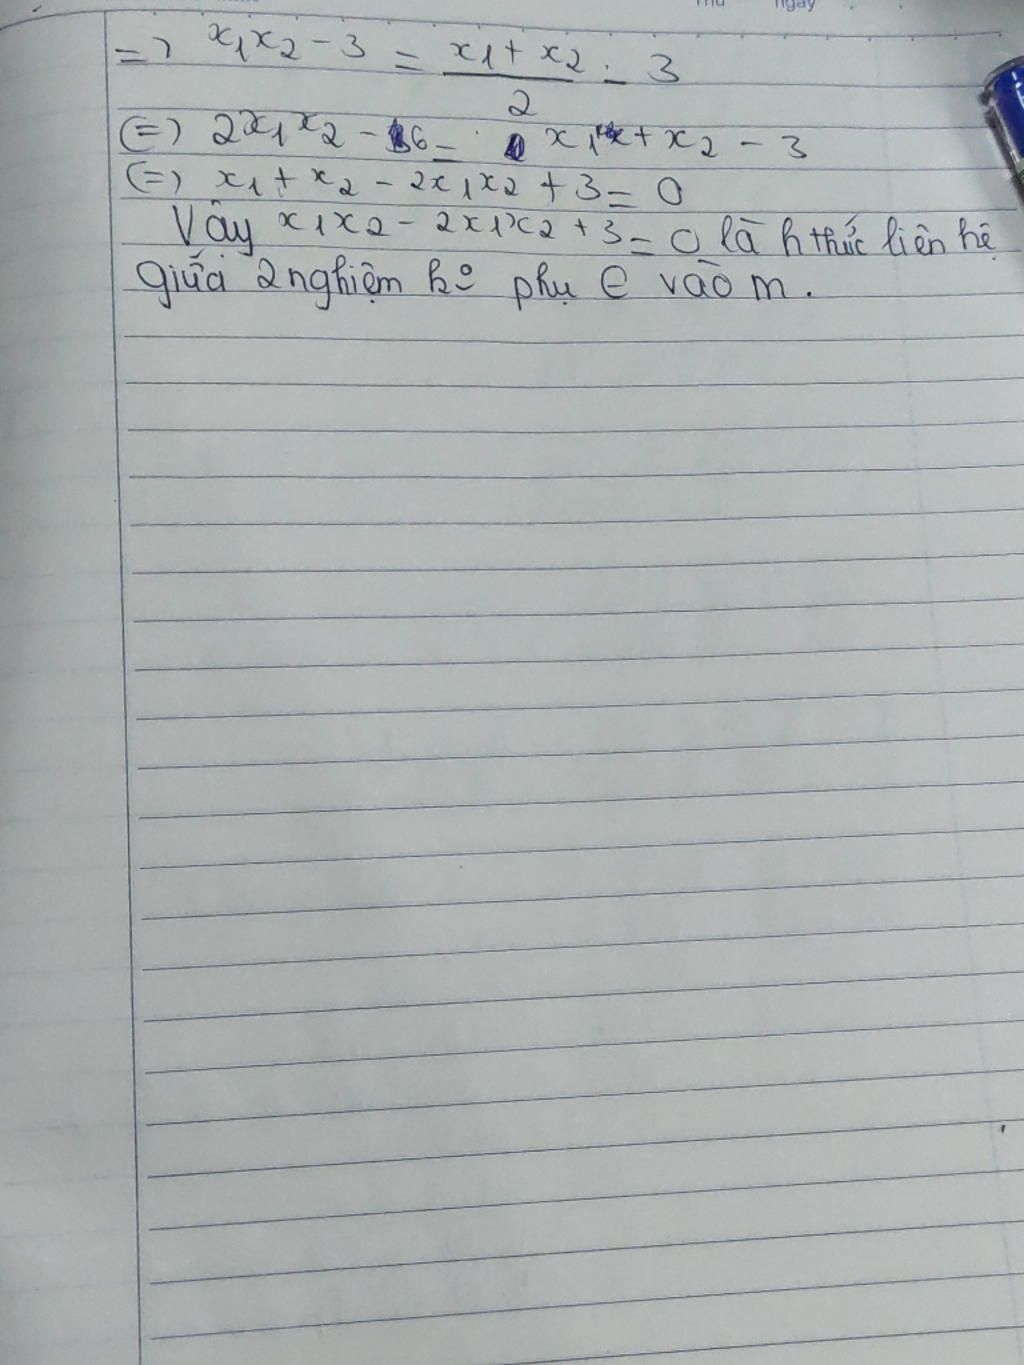 Thứ ngày
=> x₁x₂ - 3 = \frac{x₁ + x₂ - 3}{2}
(=) 2x₁x₂ - 6 = x₁ + x₂ - 3
(=) x₁ + x₂ - 2x₁x₂ + 3 = 0
Vậy x₁x₂ - 2x₁x₂ + 3 = 0 là h thức liên hệ
giữa 2 nghiệm kº phụ ∈ vào m.